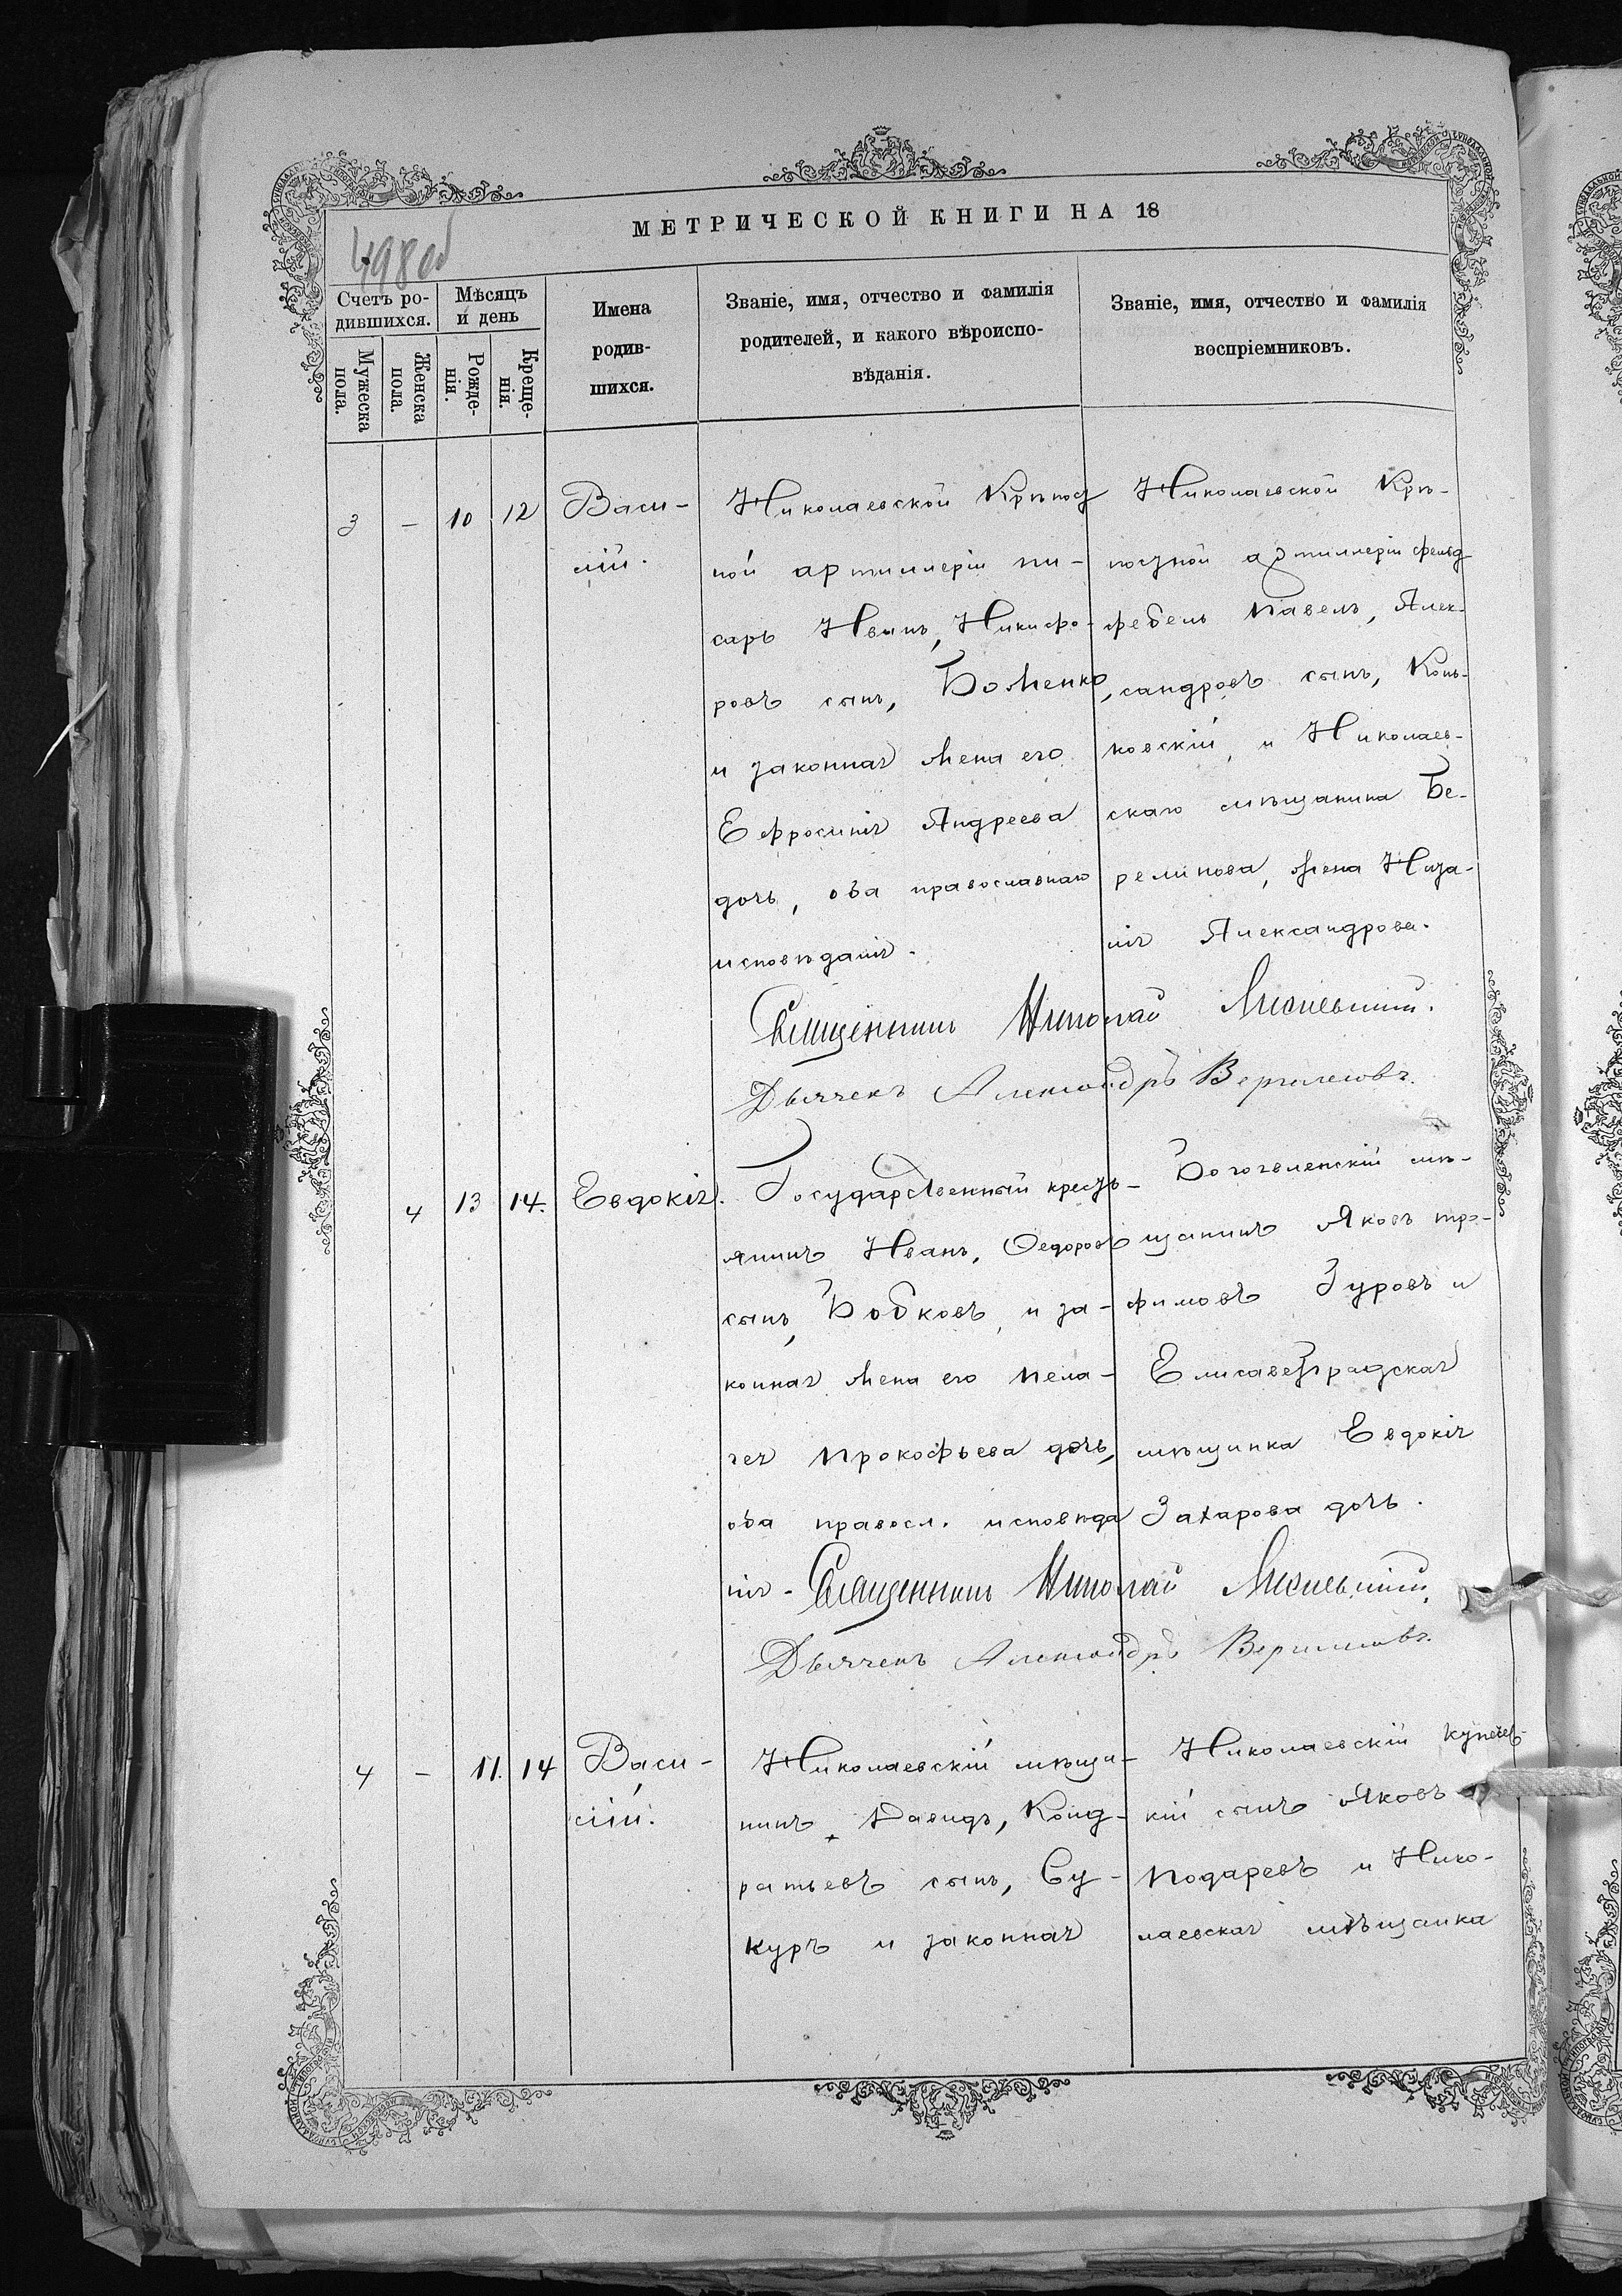 МЕТРИЧЕСКОЙ КНИГИ НА 18
498 об
Счетъ ро-
дившихся.
Мужеска
пола.
Женска
пола.
Мѣсяцъ
и день
Рожде-
нія.
Креще-
нія.
Имена
родив-
шихся.
Званіе, имя, отчество и фамилія
родителей, и какого вѣроиспо-
вѣданія.
Званіе, имя, отчество и фамилія
воспріемниковъ.
3 - 10 12
Васи-
лій.
Николаевской Крѣпост
ной артиллеріи пи-
сарь Иванъ, Никифо-
ровъ сынъ, Боженко,
и законная жена его
Ефросинія Андреева
дочь, оба православнаго
исповѣданія.
Николаевской Крѣ-
постной артиллеріи фельд-
фебель Павелъ, Алек-
сандровъ сынъ, Конь-
ковскій, и Николаев-
скаго мѣщанина Бе-
релинова, жена Низа-
нія Александрова.
Священникъ Николай
Дьячекъ Александръ
4 13 14.
Евдокія.
Государственный кресть-
янинъ Иванъ, Ѳедоровъ
сынъ, Бобковъ, и за-
конная жена его Пела-
гея Прокофьева дочь,
оба правосл. исповѣда
нія-
Богоявленскій мѣ-
щанинъ Яковъ Тро-
фимовъ Зуровъ и
Елисаветградская
мѣщанка Евдокія
Захарова дочь.
Священникъ Николай
Дьячекъ Александръ
4 - 11. 14
Васи-
лій.
Николаевскій мѣща-
нинъ, Давидъ, Конд-
ратьевъ сынъ, Су-
куръ и законная
Николаевскій купечес-
кій сынъ Яковъ
Подаревъ и Нико-
лаевская мѣщанка